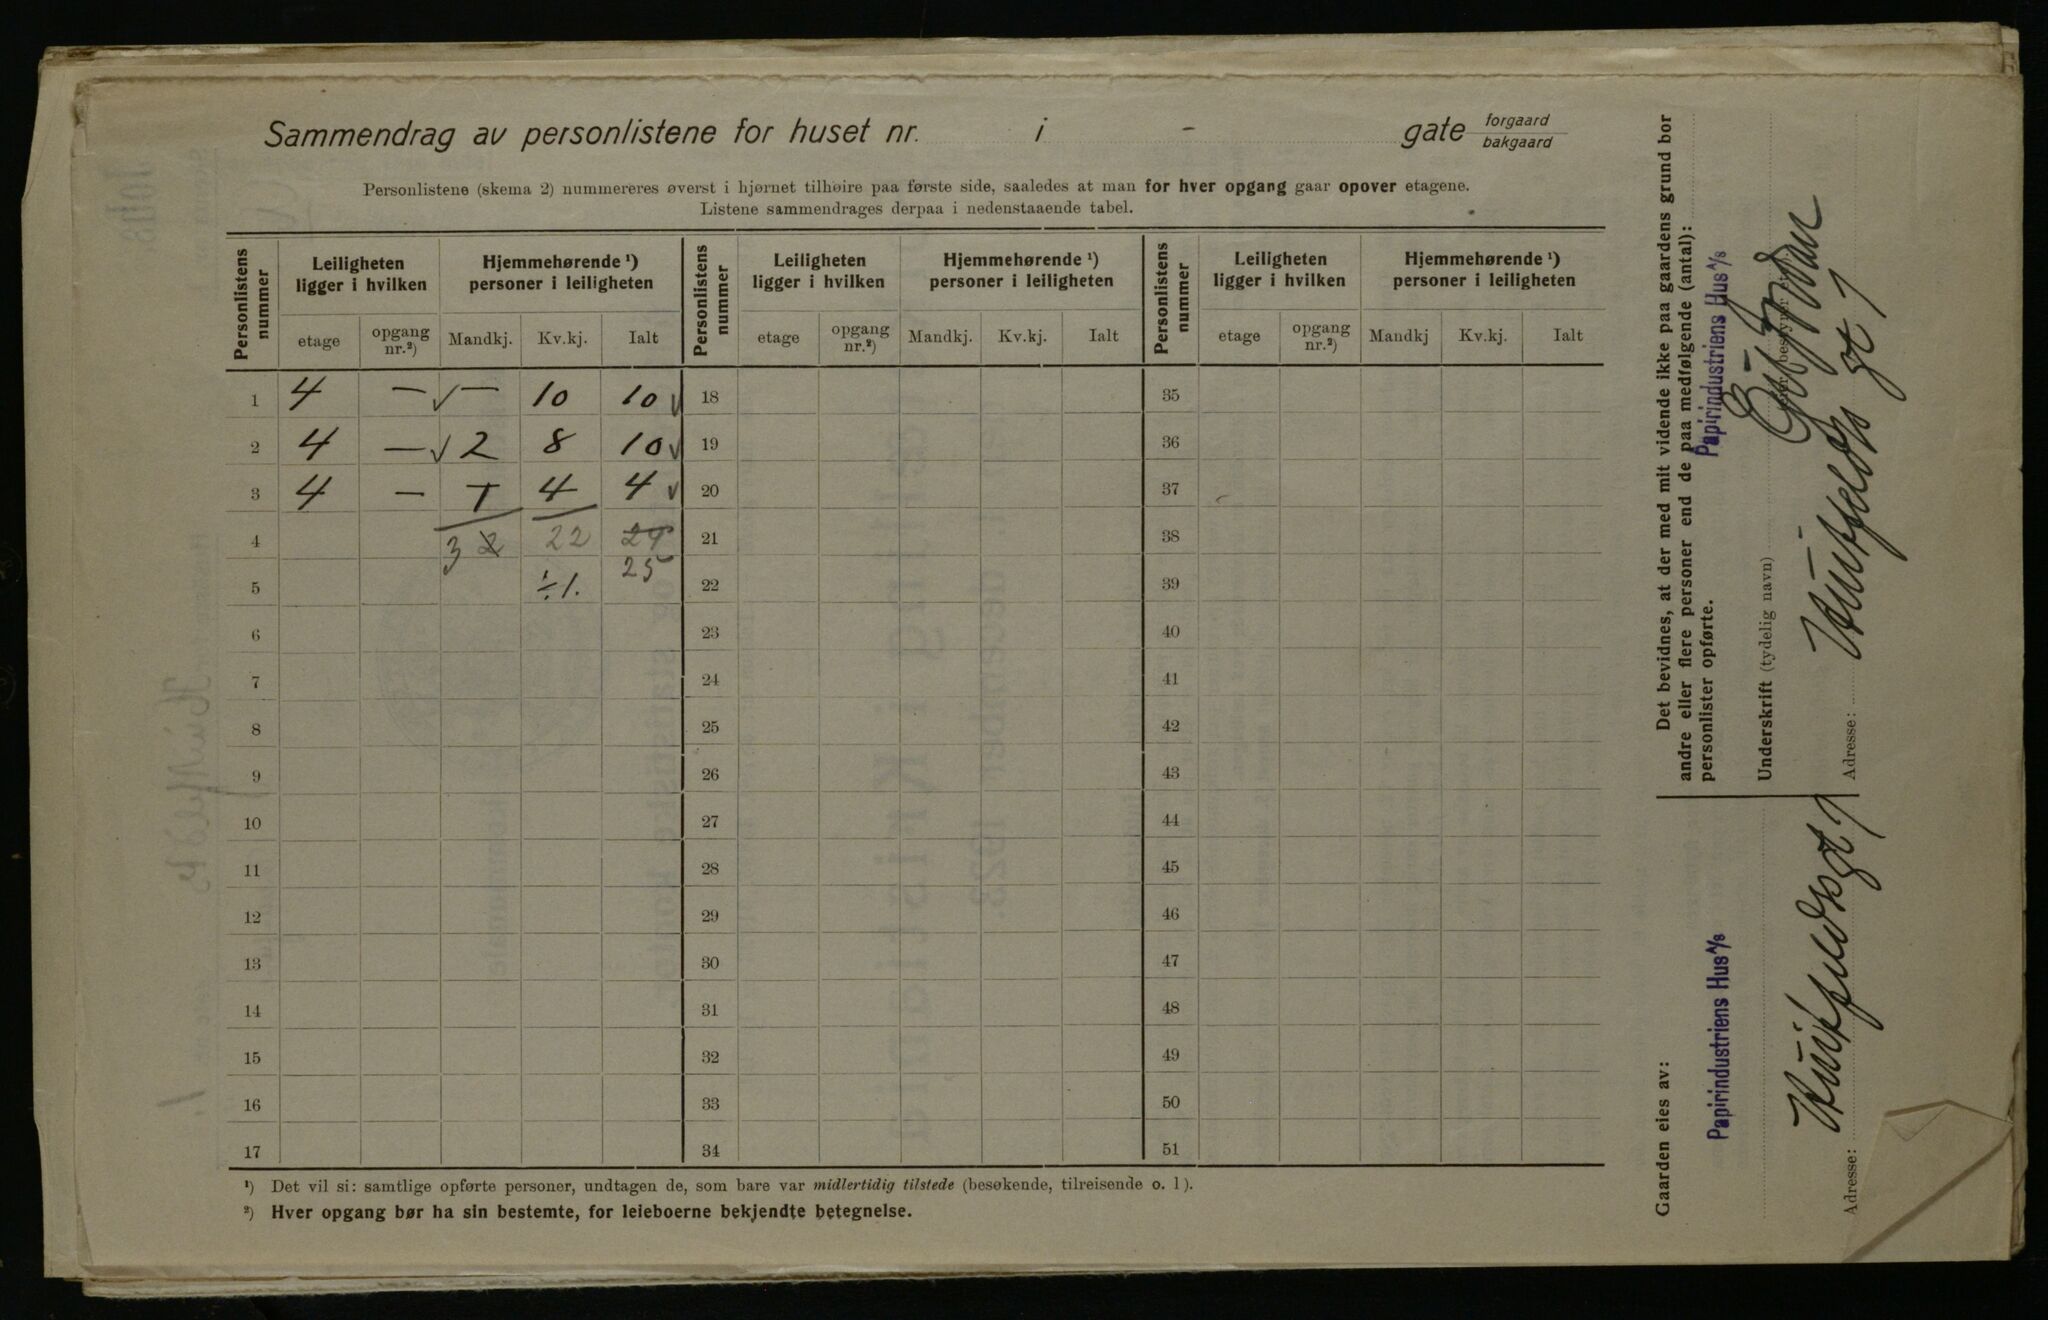 Sammendrag av personlistene for huset nr. i - gate forgaard bakgaard
Personlistene (skema 2) nummereres øverst i hjørnet tilhøire paa første side, saaledes at man for hver opgang gaar opover etagene.
Listene sammendrages derpaa i nedenstaaende tabel.
Personlistens nummer | Leiligheten ligger i hvilken | Hjemmehørende ¹) personer i leiligheten | Personlistens nummer | Leiligheten ligger i hvilken | Hjemmehørende ¹) personer i leiligheten | Personlistens nummer | Leiligheten ligger i hvilken | Hjemmehørende ¹) personer i leiligheten
etage | opgang nr.²) | Mandkj. | Kv.kj. | Ialt | etage | opgang nr.²) | Mandkj. | Kv.kj. | Ialt | etage | opgang nr.²) | Mandkj | Kv.kj. | Ialt
1 4 — √ — 10 10 √ 18 35
2 4 — √ 2 8 10 √ 19 36
3 4 — 1 4 4 √ 20 37
4 3 2 22 24 21 38
25
5 ÷1. 22 39
6 23 40
7 24 41
8 25 42
9 26 43
10 27 44
11 28 45
12 29 46
13 30 47
14 31 48
15 32 49
16 33 50
17 34 51
¹) Det vil si: samtlige opførte personer, undtagen de, som bare var midlertidig tilstede (besøkende, tilreisende o. l).
²) Hver opgang bør ha sin bestemte, for leieboerne bekjendte betegnelse.
Det bevidnes, at der med mit vidende ikke paa gaardens grund bor
andre eller flere personer end de paa medfølgende (antal):
personlister opførte.
Papirindustriens Hus A/s
Underskrift (tydelig navn)
Adresse: Huitfeldts gt 1
Gaarden eies av:
Papirindustriens Hus A/s
Adresse: Huitfeldsgt 1